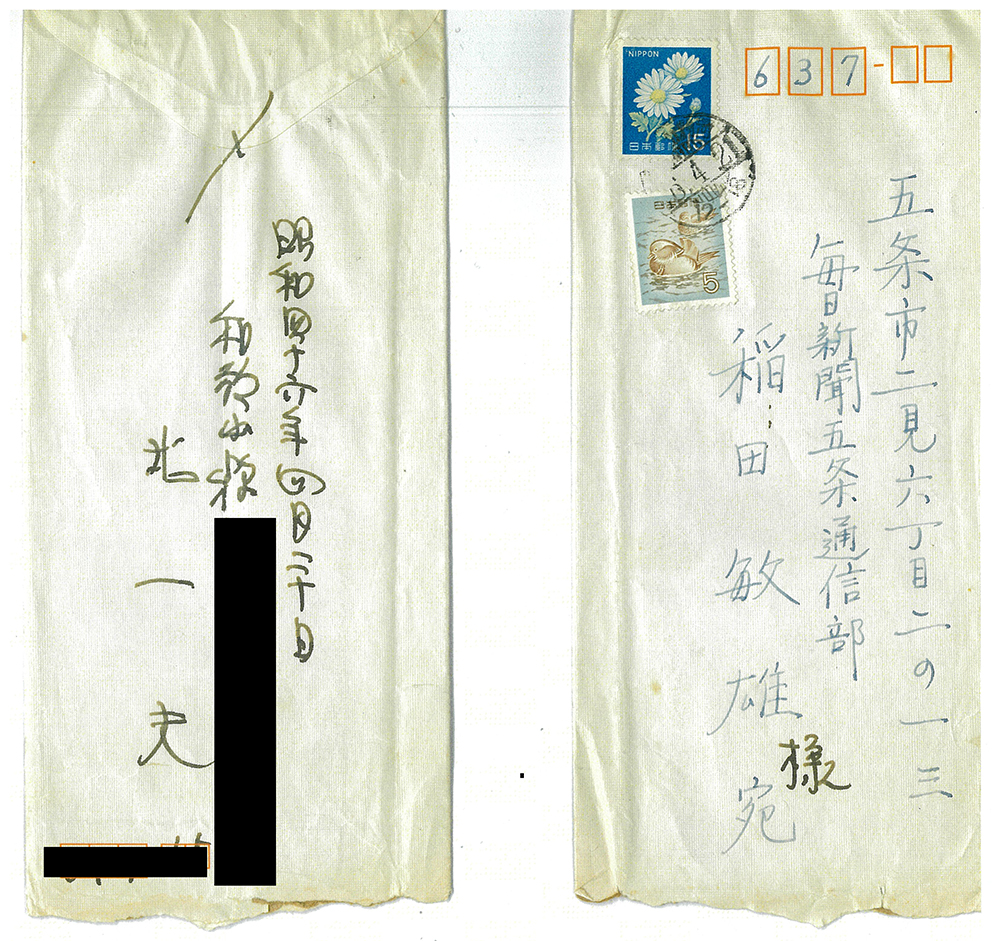 昭和四十六年四月二十日
和歌山県
北一夫
〆
NIPPON
日本郵便
15
日本郵便
5
637-
五条市二見六丁目二の一三
毎日新聞五条通信部
稲田敏雄宛
様